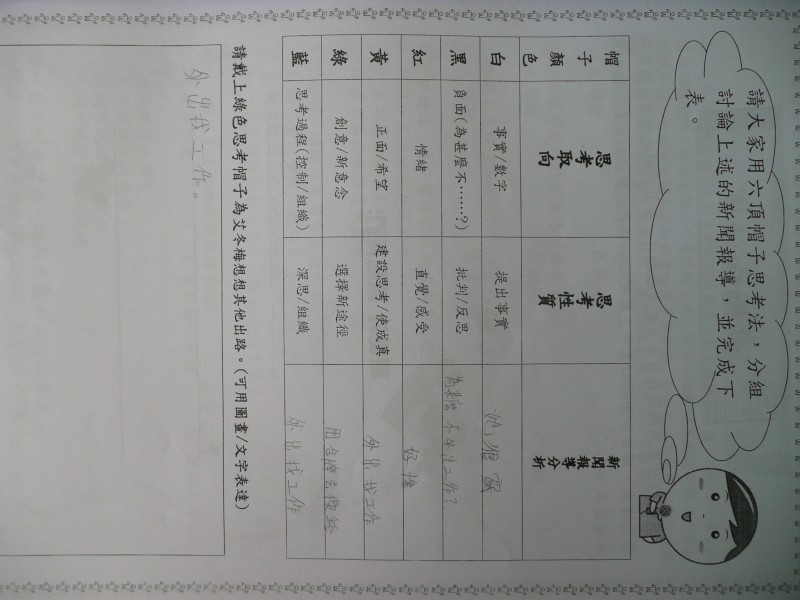 請大家用六頂帽子思考法，分組
討論上述的新聞報導，並完成下
表。
帽子顏色 思考取向 思考性質 新聞報導分析
白 事實/數字 提出事實 她很窮
黑 負面(為甚麼不……?) 批判/反思 為甚麼不外出工作?
紅 情緒 直覺/感受 好慘
黃 正面/希望 建設思考/使成真 外出找工作
綠 創意/新意念 選擇新途徑
藍 思考過程(控制/組織) 深思/組織 外出找工作
請戴上綠色思考帽子為艾冬梅想想其他出路。(可用圖畫/文字表達)
外出找工作。